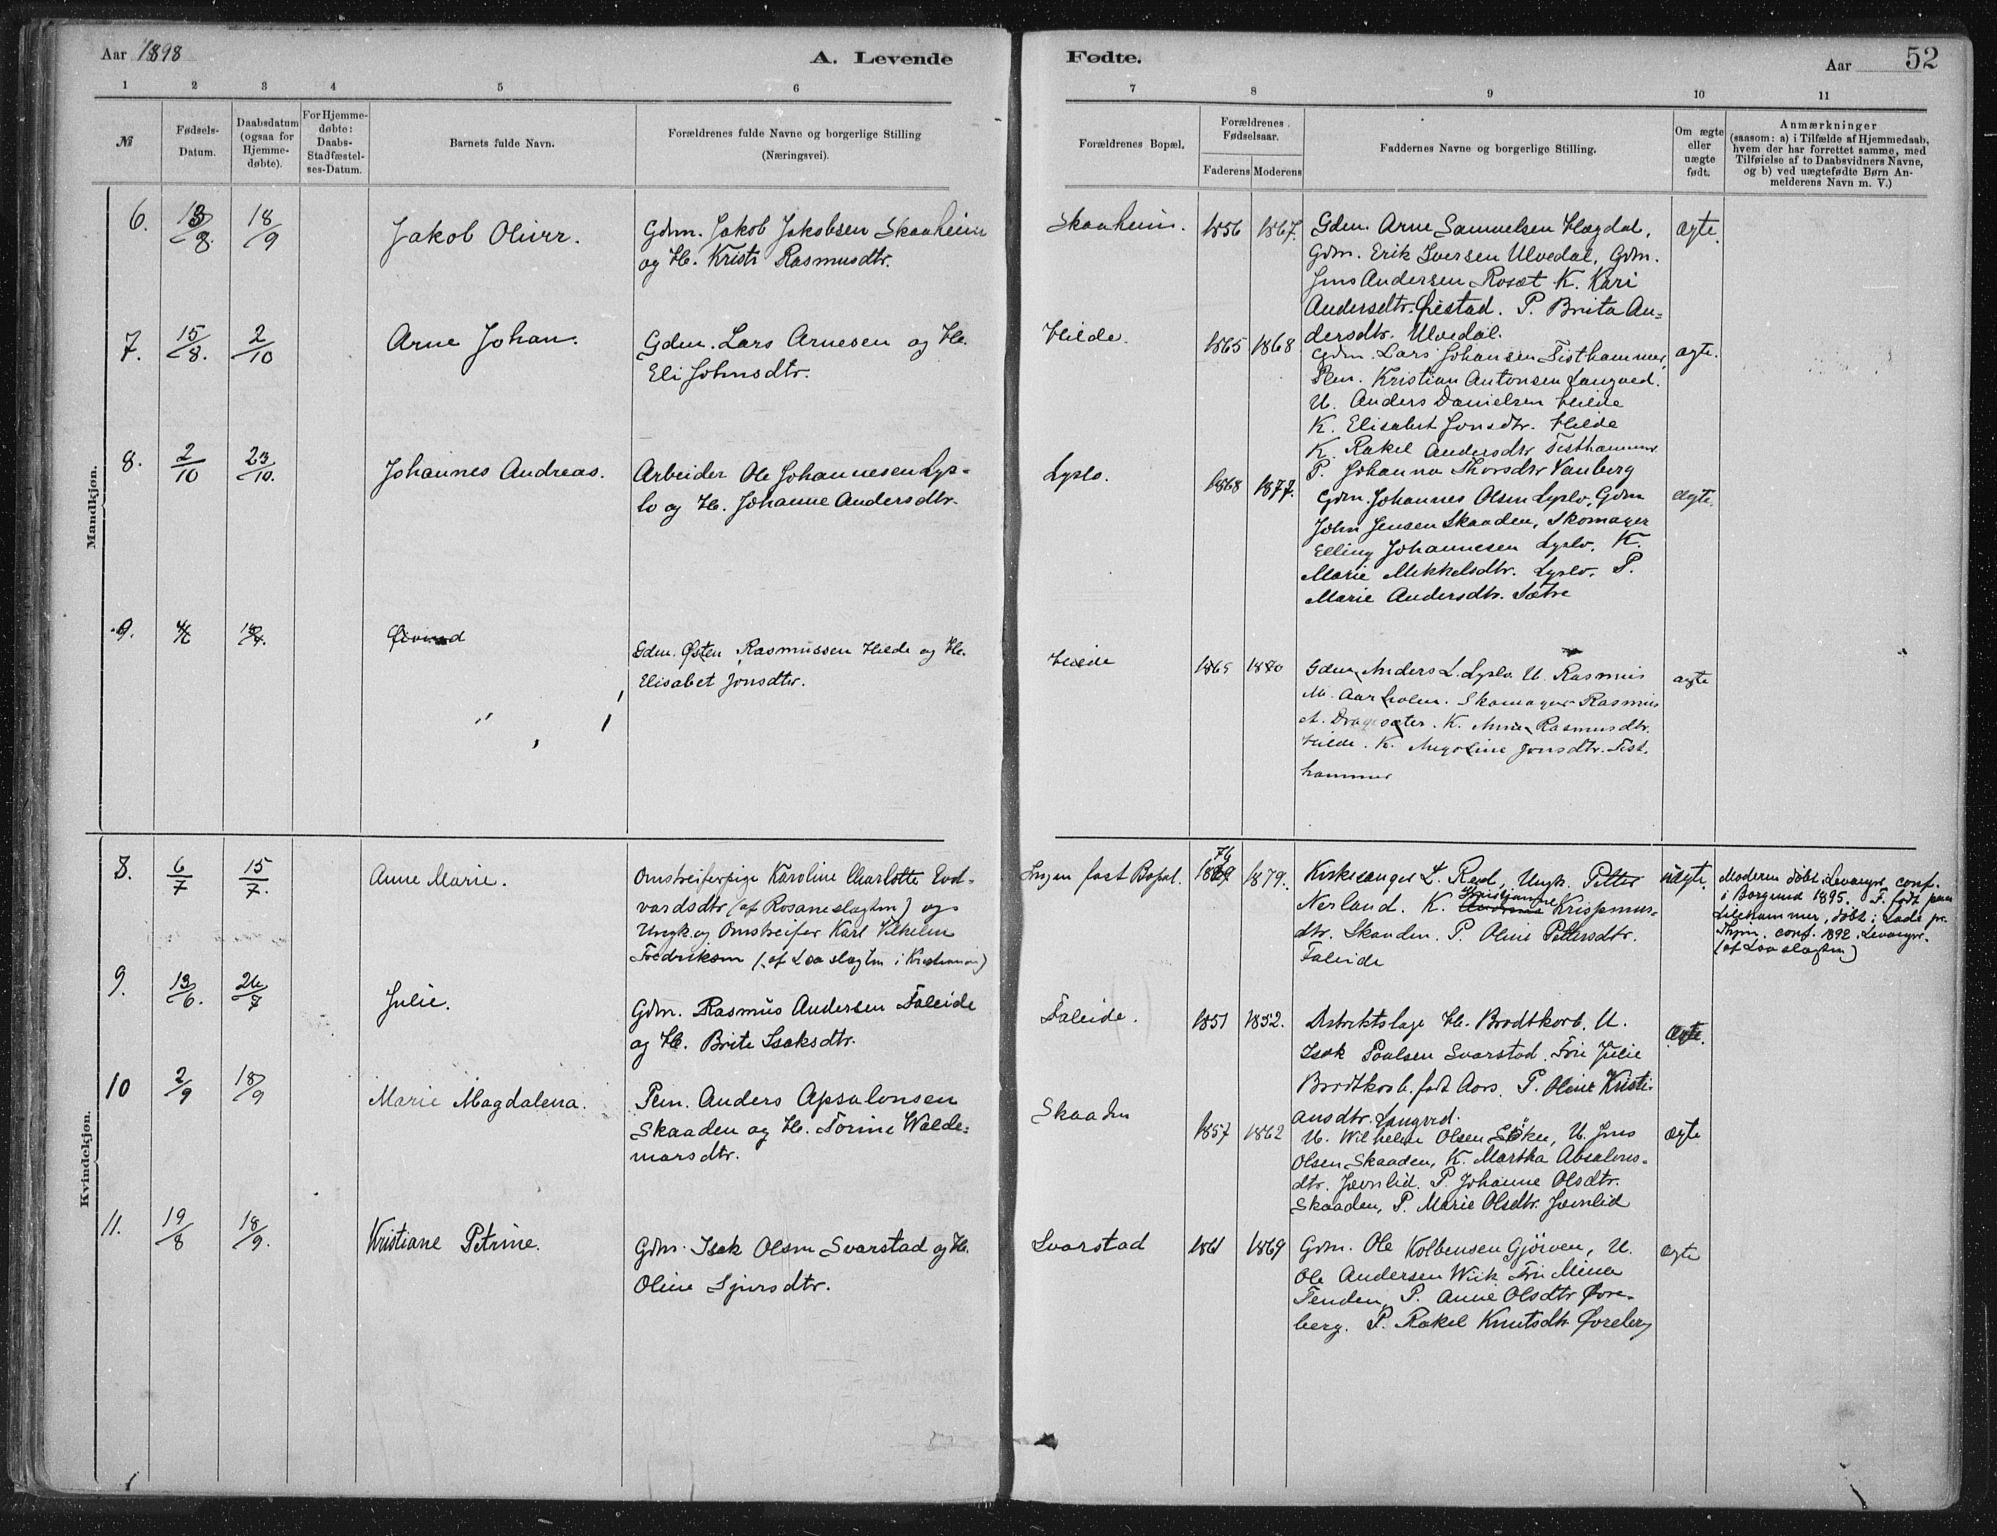 Aar 1898
A. Levende
Fødte.
Aar
52
1 2 3 4 5 6 7 8 9 10 11
№
Fødsels-
Datum.
Daabsdatum
(ogsaa for
Hjemme-
døbte).
For Hjemme-
døbte:
Daabs-
Stadfæstel-
ses-Datum.
Barnets fulde Navn.
Forældrenes fulde Navne og borgerlige Stilling
(Næringsvei).
Forældrenes Bopæl.
Forældrenes
Fødselsaar.
Faderens Moderens
Faddernes Navne og borgerlige Stilling.
Om ægte
eller
uægte
født.
Anmærkninger
(saasom: a) i Tilfælde af Hjemmedaab,
hvem der har forrettet samme, med
Tilføielse af to Daabsvidners Navne,
og b) ved uægtefødte Børn An-
melderens Navn m. V.)
Mandkjøn.
6. 13/8. 18/9
Jakob Oliver.
Gdm. Jakob Jakobsen Skaaheim
og H. Kristi Rasmusdtr.
Skaaheim. 1856 1867.
Gdm. Arne Samuelsen Hægdal,
Gdm. Erik Iversen Ulvedal, Gdm.
Jens Andersen Roset K. Kari
Andersdtr. Øiestad. P. Brita An-
dersdtr. Ulvedal.
ægte.
7. 15/8. 2/10
Arne Johan.
Gdm. Lars Arnesen og H.
Eli Johnsdtr.
Hilde. 1865 1868
Gdm. Lars Johansen Tisthammer,
Pln. Kristian Antonsen Langved.
U. Anders Danielsen Hilde
K. Elisabet Jonsdtr. Hilde
K. Rakel Andersdtr Tisthammer
P. Johanna Thorsdtr Vanberg
ægte.
8. 2/10 23/10.
Johannes Andreas.
Arbeider Ole Johannesen Lys-
lo og H. Johanne Andersdtr.
Lyslo. 1868 1877.
Gdm. Johannes Olsen Lyslo, Gdm
John Jensen Skaaden, Skomager
Elling Johannesen Lyslo. K.
Marie Mikkelsdtr. Lyslo. P.
Marie Andersdtr. Sætre
ægte.
9. 4/6
Øivind
Gdm. Østen Rasmussen Hilde og H.
Elisabet Jonsdtr.
Hilde 1865 1870
Gdm Anders L. Lyslo U. Rasmus
M. Aarholm. Skomager Rasmus
A. Dragesæter. K. Anne Rasmusdtr.
Hilde. K. Angoline Jonsdtr. Tist.
hammer
ægte
Kvindekjøn.
8. 6/7 15/7.
Anne Marie.
Omstreiferpige Karoline Charlotte Evd-
vardsdtr (af Rosaneslægten) og
Ungk. og Omstreifer Karl Vilhelm
Fredriksen (af Loa slægten i Kristiania)
Ingen fast Bopæl. 76 1879.
Kirkesanger L. Rød, Ungk. Petter
Nerland. K. Kristianne Krispinus-
dtr. Skaaden. P. Oline Pettersdtr.
Faleide
uægte.
Moderen døbt i Levanger, conf.
i Borgund 1895. F. født paa
Lilehammer, døbt i Lade pr.
Thjm. conf. 1892 i Levanger.
(af Loa slægten)
9. 13/6. 26/7
Julie.
Gdm. Rasmus Andersen Faleide
og H. Brite Isaksdtr.
Faleide. 1851 1852.
Distriktslæge H. Brodtkorb. U.
Isak Paulsen Svarstad. Fru Julie
Brodtkorb. født Aars. P. Oline Kristi-
ansdtr. Langved.
ægte.
10 2/9 18/9
Marie Magdalena.
Pm. Anders Apsalonsen
Skaaden og H. Torine Walde-
marsdtr.
Skaaden 1857 1862
U. Wilhelm Olsen Støken, U. Jens
Olsen Skaaden, K. Martha Absalons-
dtr. Jevnlid. P. Johanne Olsdtr.
Skaaden, P. Marie Olsdtr. Jevnlid
ægte
11. 19/8 18/9.
Kristiane Petrine.
Gdm. Isak Olsen Svarstad og H.
Oline Sjursdtr.
Svarstad 1861 1869
Gdm. Ole Kolbensen Gjørven, U.
Ole Andersen Wiik. Fru Mina
Tenden, P. Anne Olsdtr Øvre-
berg. P. Rakel Knutsdtr Øvreberg
ægte